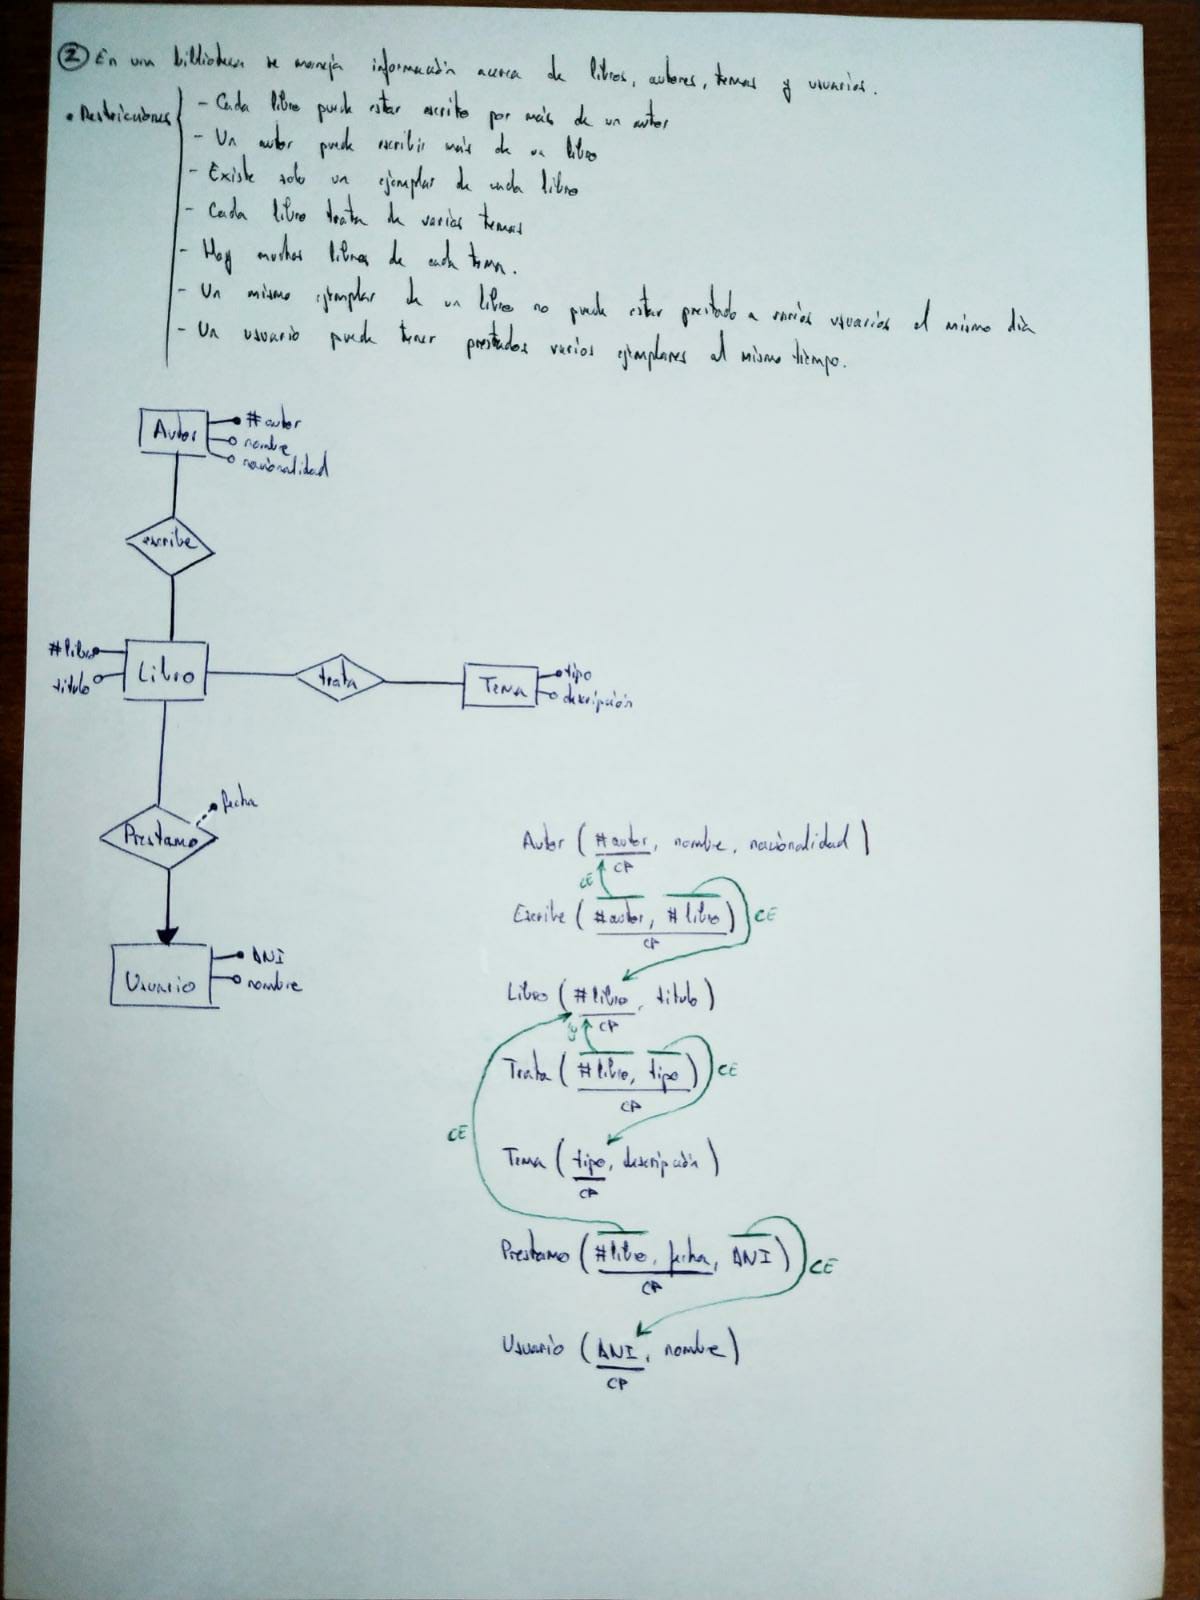 2 En una biblioteca se maneja información acerca de libros, autores, temas y usuarios.
• Restricciones
- Cada libro puede estar escrito por más de un autor
- Un autor puede escribir más de un libro
- Existe solo un ejemplar de cada libro
- Cada libro trata de varios temas
- Hay muchos libros de cada tema.
- Un mismo ejemplar de un libro no puede estar prestado a varios usuarios el mismo día
- Un usuario puede tener prestados varios ejemplares al mismo tiempo.
Autor
#autor
nombre
nacionalidad
escribe
#libro
titulo
Libro
trata
Tema
tipo
descripción
fecha
Prestamo
Usuario
DNI
nombre
Autor (#autor, nombre, nacionalidad)
CP
CE
Escribe (#autor, #libro)
CE
CP
Libro (#libro, titulo)
CP
CE
Trata (#libro, tipo)
CE
CP
CE
Tema (tipo, descripción)
CP
Prestamo (#libro, fecha, DNI)
CE
CP
Usuario (DNI, nombre)
CP